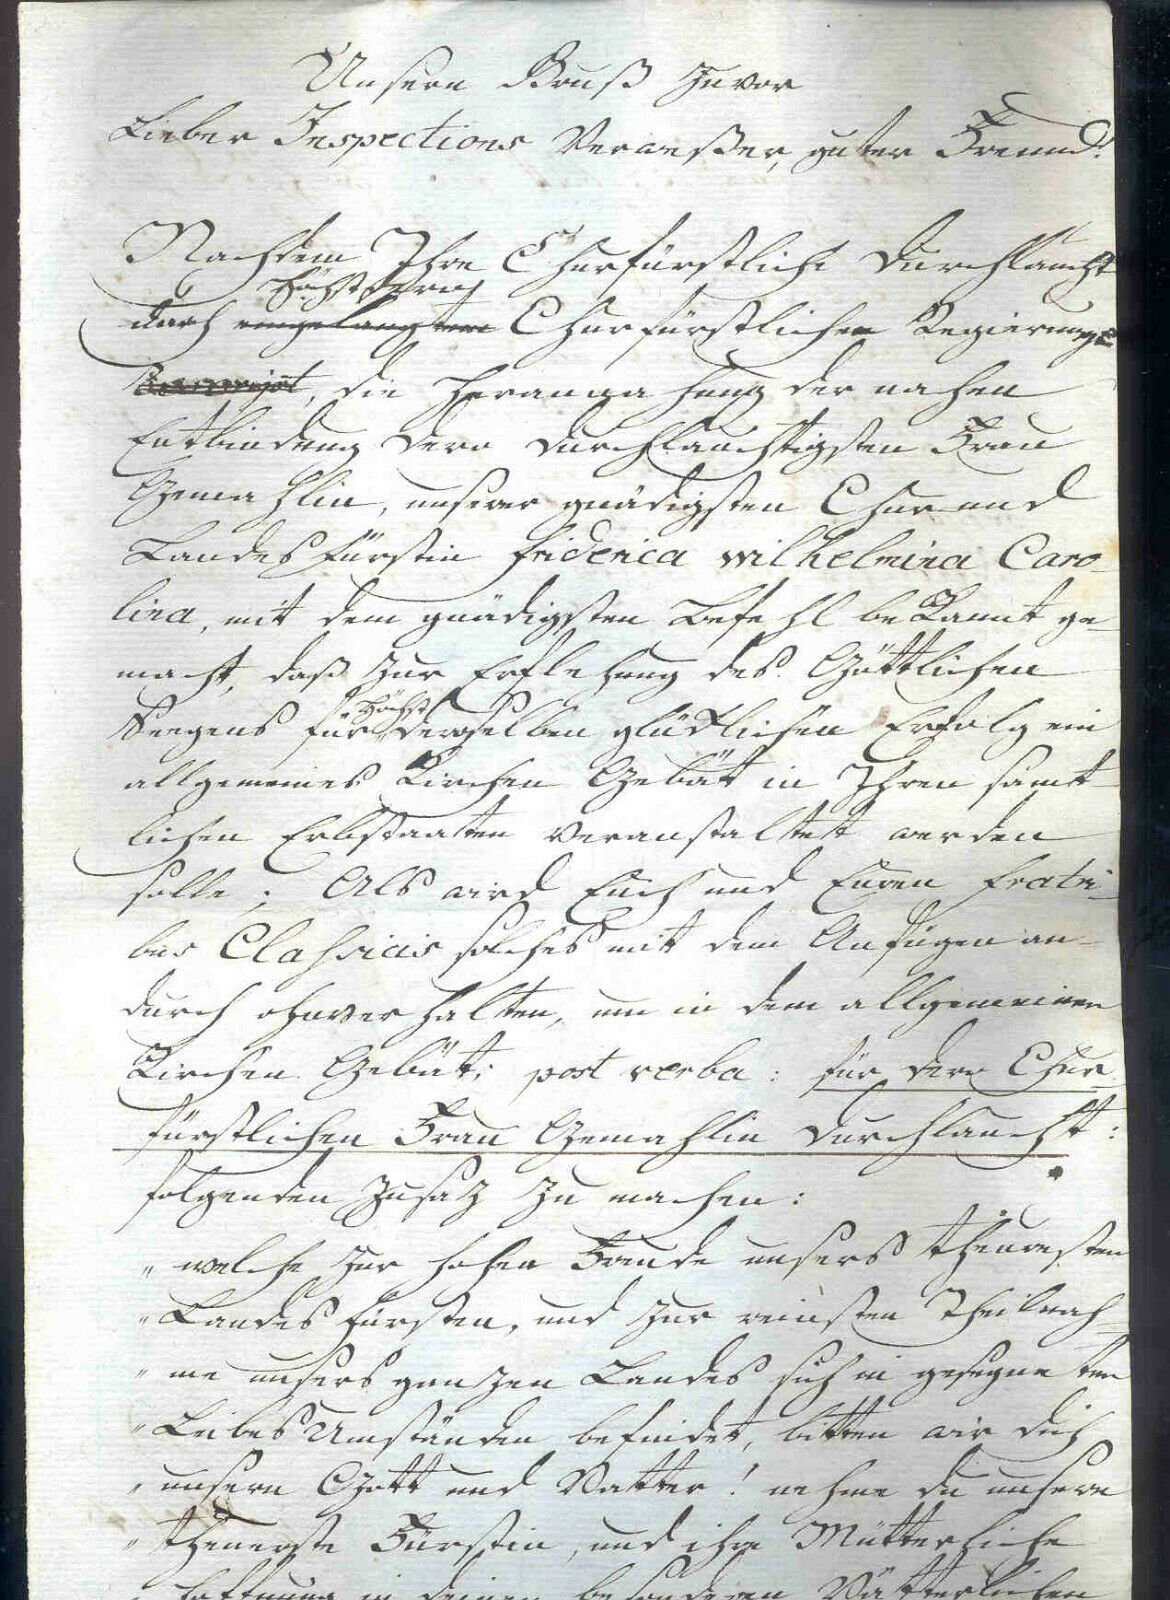 Unsern Gruß zuvor
Lieber Inspections Verweßer, guter Freund!
Nachdem Ihre Churfürstliche Durchlaucht
höchst
durch eingelangten Churfürstlichen Regierungs
, die herannahung der nahen
Entbindung dero durchlauchtigsten Frau
Gemahlin, unserer gnädigsten Chur und
Landes Fürstin Friderica Wilhelmina Caro-
lina, mit dem gnädigsten Befehl bekannt ge-
macht, daß zur Erflehung des Göttlichen
Höchst
Seegens für derselben glücklichen Erfolg ein
allgemeines Kirchen Gebätt in Ihren samt-
lichen Erbstaaten veranstaltet werden
solle; Als wird Euch und Euren fratri-
bus Classicis solches mit dem Anfügen an-
durch ohnverhalten, um in dem allgemeinen
Kirchen Gebätt, post verba: für dero Chur
fürstlichen Frau Gemahlin Durchlaucht:
folgenden Zusatz zu machen:
„ welche zur hohen Freude unsers theuresten
„ Landes Fürsten, und zur reinsten Theilnah-
„ me unsers ganzen Landes sich in gesegneten
„ Leibes Umständen befindet, bitten wir dich
„ unsern Gott und Vatter! nehme du unsere
„ theuerste Fürstin, und ihre Mütterliche
„ Hoffnung in deinen besonderen Vätterlichen